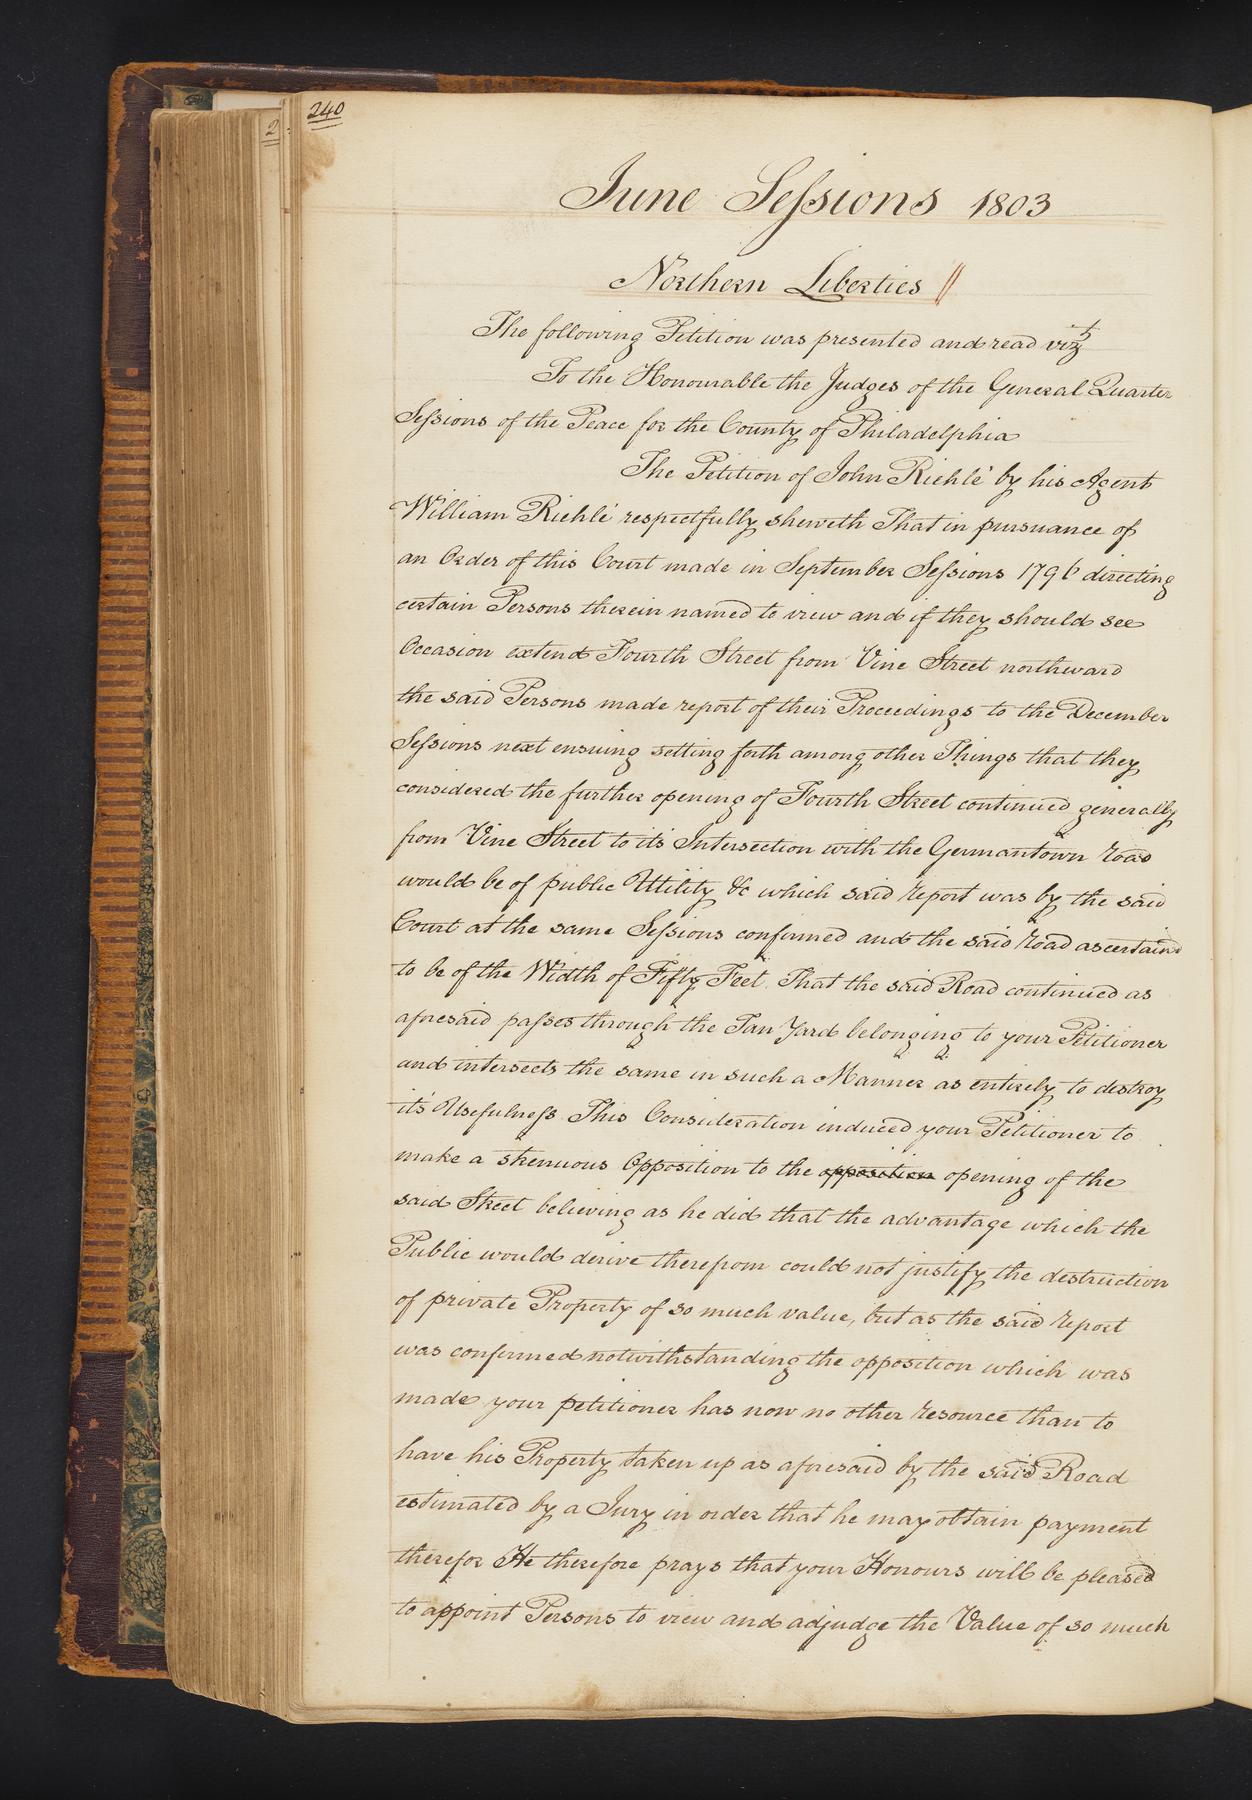 240
June Sessions 1803
Northern Liberties //
The following Petition was presented and read vizt
To the Honourable the Judges of the General Quarter
Sessions of the Peace for the County of Philadelphia
The Petition of John Riehlé by his Agent
William Riehlé respectfully sheweth That in pursuance of
an Order of this Court made in September Sessions 1796 directing
certain Persons therein named to view and if they should see
Occasion extend Fourth Street from Vine Street northward
the said Persons made report of their Proceedings to the December
Sessions next ensuing setting forth among other Things that they
considered the further opening of Fourth Street continued generally
from Vine Street to its Intersection with the Germantown road
would be of public Utility &c which said report was by the said
Court at the same Sessions confirmed and the said road ascertaind
to be of the Width of Fifty Feet. That the said Road continued as
aforesaid passes through the Tan Yard belonging to your Petitioner
and intersects the same in such a Manner as entirely to destroy
its Usefulness This Consideration induced your Petitioner to
make a strenuous Opposition to the opposition opening of the
said Street believing as he did that the advantage which the
Public would derive therefrom could not justify the destruction
of private Property of so much value, but as the said report
was confirmed notwithstanding the opposition which was
made your petitioner has now no other resource than to
have his Property taken up as aforesaid by the said Road
estimated by a Jury in order that he may obtain payment
therefor He therefore prays that your Honours will be pleased
to appoint Persons to view and adjudge the Value of so much